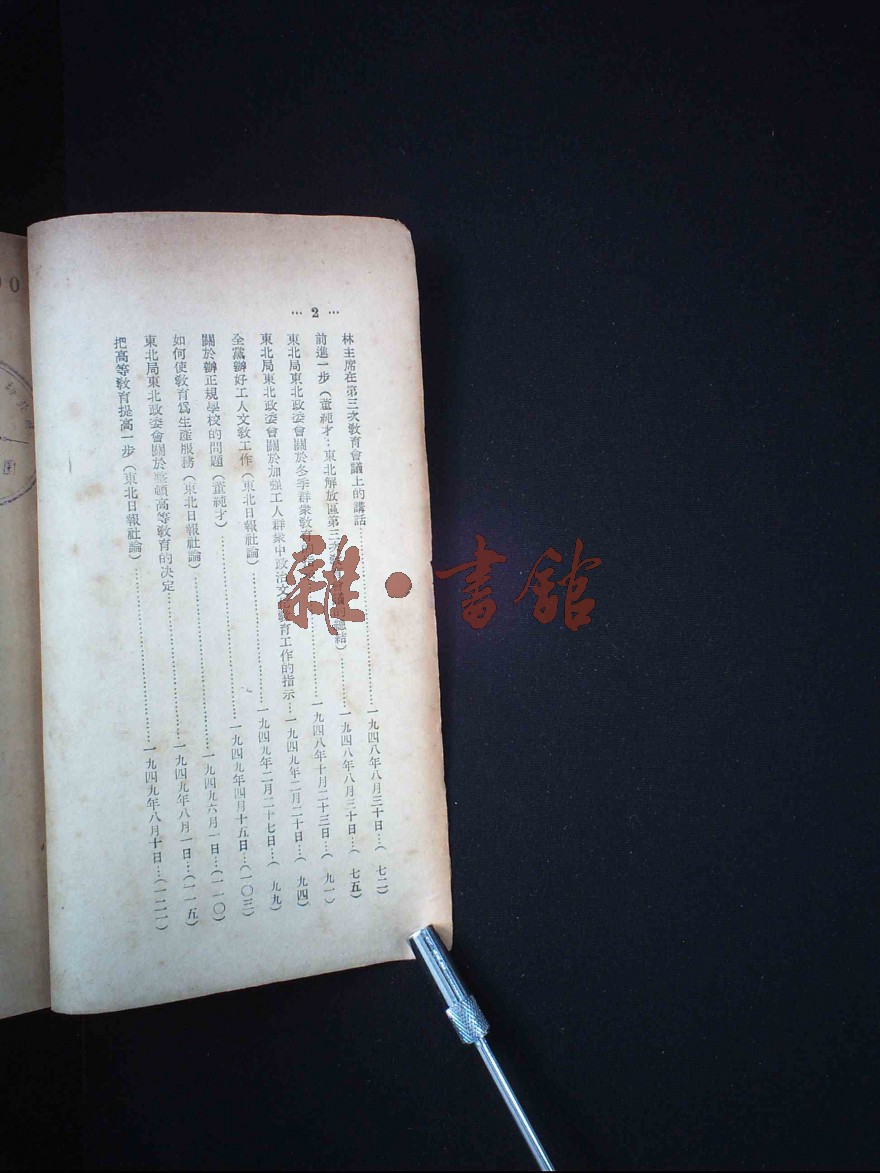 … 2 …
林主席在第三次教育會議上的講話……一九四八年八月三十日…(七二)
前進一步(董純才:東北解放區第三次會議的總結)……一九四八年八月三十日…(七五)
東北局東北政委會關於冬季群衆教育的……一九四八年十月二十三日…(九一)
東北局東北政委會關於加强工人群衆中政治文化教育工作的指示…一九四九年二月二十日…(九四)
全黨辦好工人文教工作(東北日報社論)……一九四九年二月二十七日…(九九)
關於辦正規學校的問題(董純才)……一九四九年四月十五日…(一〇三)
如何使教育爲生產服務(東北日報社論)……一九四九六月一日…(一一〇)
東北局東北政委會關於整頓高等教育的决定……一九四九年八月一日…(一一五)
把高等教育提高一步(東北日報社論)……一九四九年八月十日…(一二一)
雜·書館